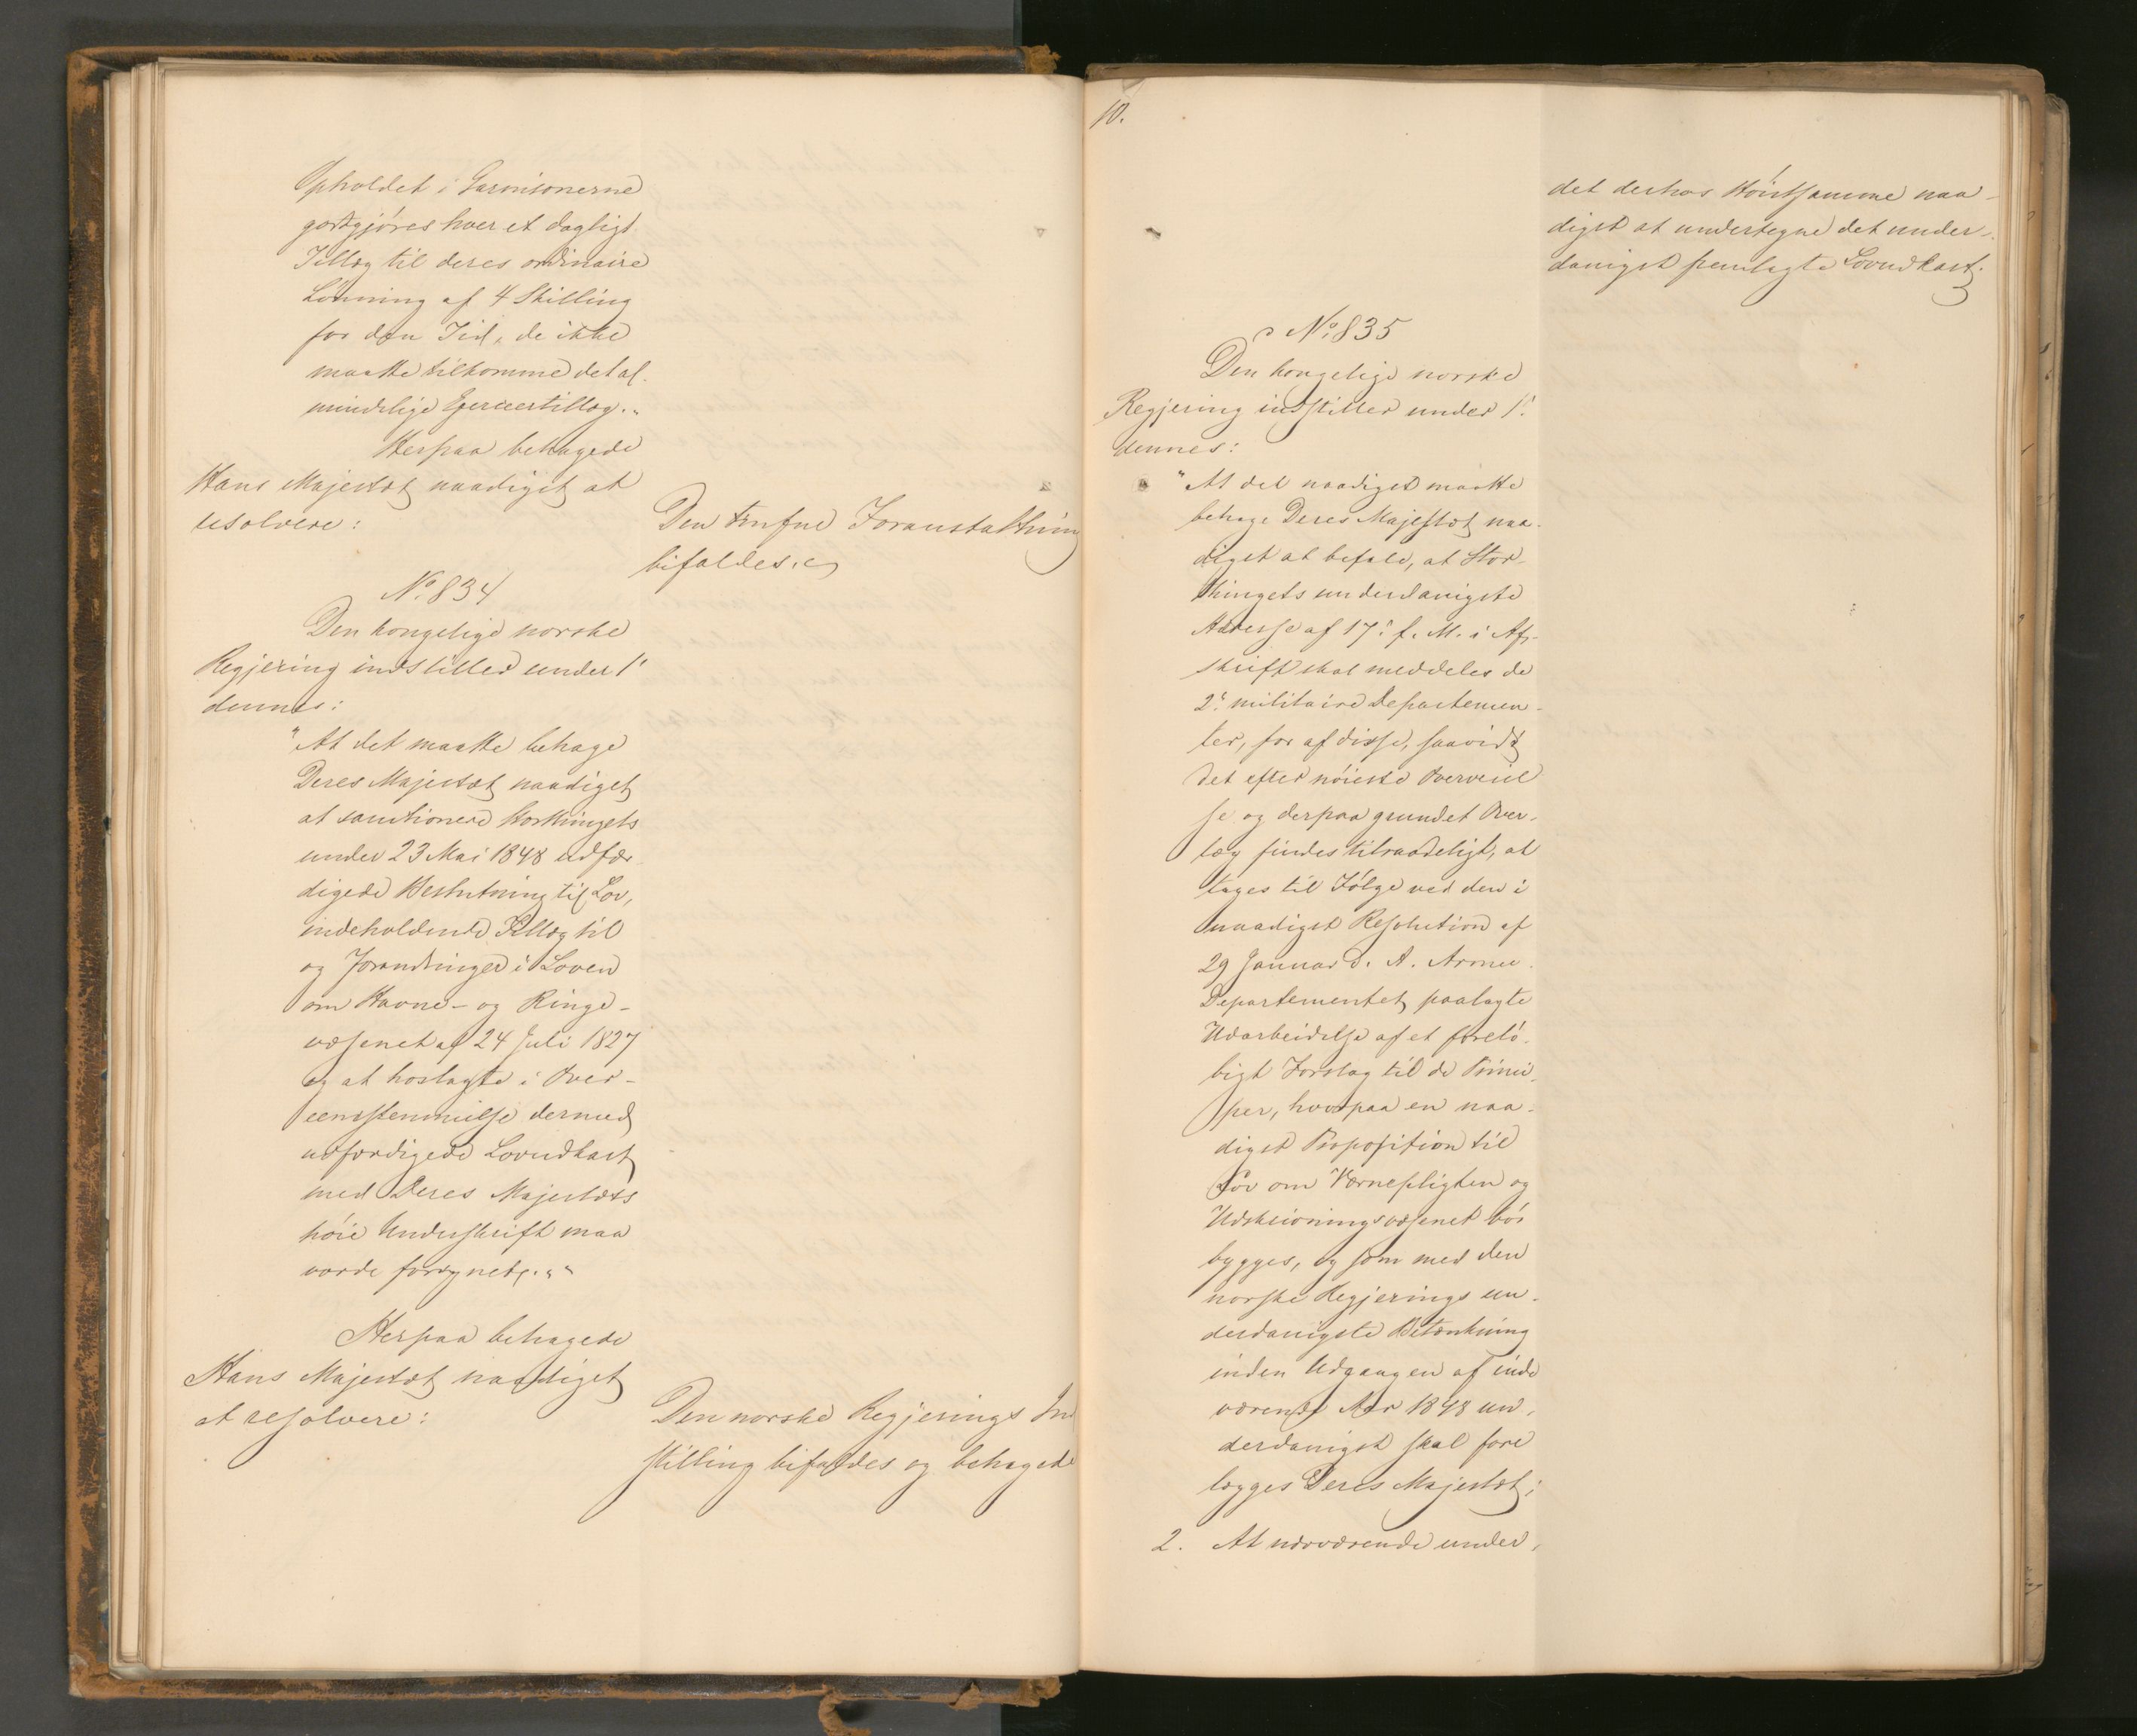 Opholdet i Garnisonerne
godtgjøres hver et dagligt
Tillæg til deres ordinaire
Lønning af 4 Skilling
for den Tid, de ikke
maatte tilkomme det al-
mindelige Exercertillæg."
Herpaa behagede
Hans Majestæt naadigst at
resolvere:
Den trufne Foranstaltning
bifaldes.
No. 834
Den kongelige norske
Regjering indstiller under 1.
dennes:
"At det maatte behage
Deres Majestæt naadigst
at sanctionere Storthingets
under 23 Mai 1848 udfær-
digede Beslutning til Lov,
indeholdende Tillæg til
og Forandringer i Loven
om Havne- og Ringe-
væsenet af 24 Juli 1827
og at hoslagte i Over-
eensstemmelse dermed
udfærdigede Lovudkast
med Deres Majestæts
høie Underskrift maa
vorde forsynet."
Herpaa behagede
Hans Majestæt naadigst
at resolvere:
Den norske Regjerings Ind
stilling bifaldes og behagede
10.
det derhos Høistsamme naa-
digst at undertegne det under-
danigst fremlagte Lovudkast.
No. 835
Den kongelige norske
Regjering indstiller under 1.
dennes:
"At det naadigst maatte
behage Deres Majestæt naa-
digst at befale, at Stor-
thingets underdanigste
Adresse af 17. f. M. i Af-
skrift skal meddeles de
2. militaire Departemen-
ter, for af disse, saavidt
det efter nøieste Overveiel
se og derpaa grundet Over-
læg findes tilraadeligt, at
tages til Følge ved den i
naadigst Resolution af
29 Januar d. A. Armee-
Departementet paalagte
Udarbeidelse af et forelø-
bigt Forslag til de Princi-
per, hvorpaa en naa-
digst Proposition til
Lov om Værnepligten og
Udskrivningsvæsenet bør
bygges, og som med den
norske Regjerings un-
derdanigste Betænkning
inden Udgangen af inde
værende Aar 1848 un-
derdanigst skal fore
lægges Deres Majestæt;
2. At nærværende under-